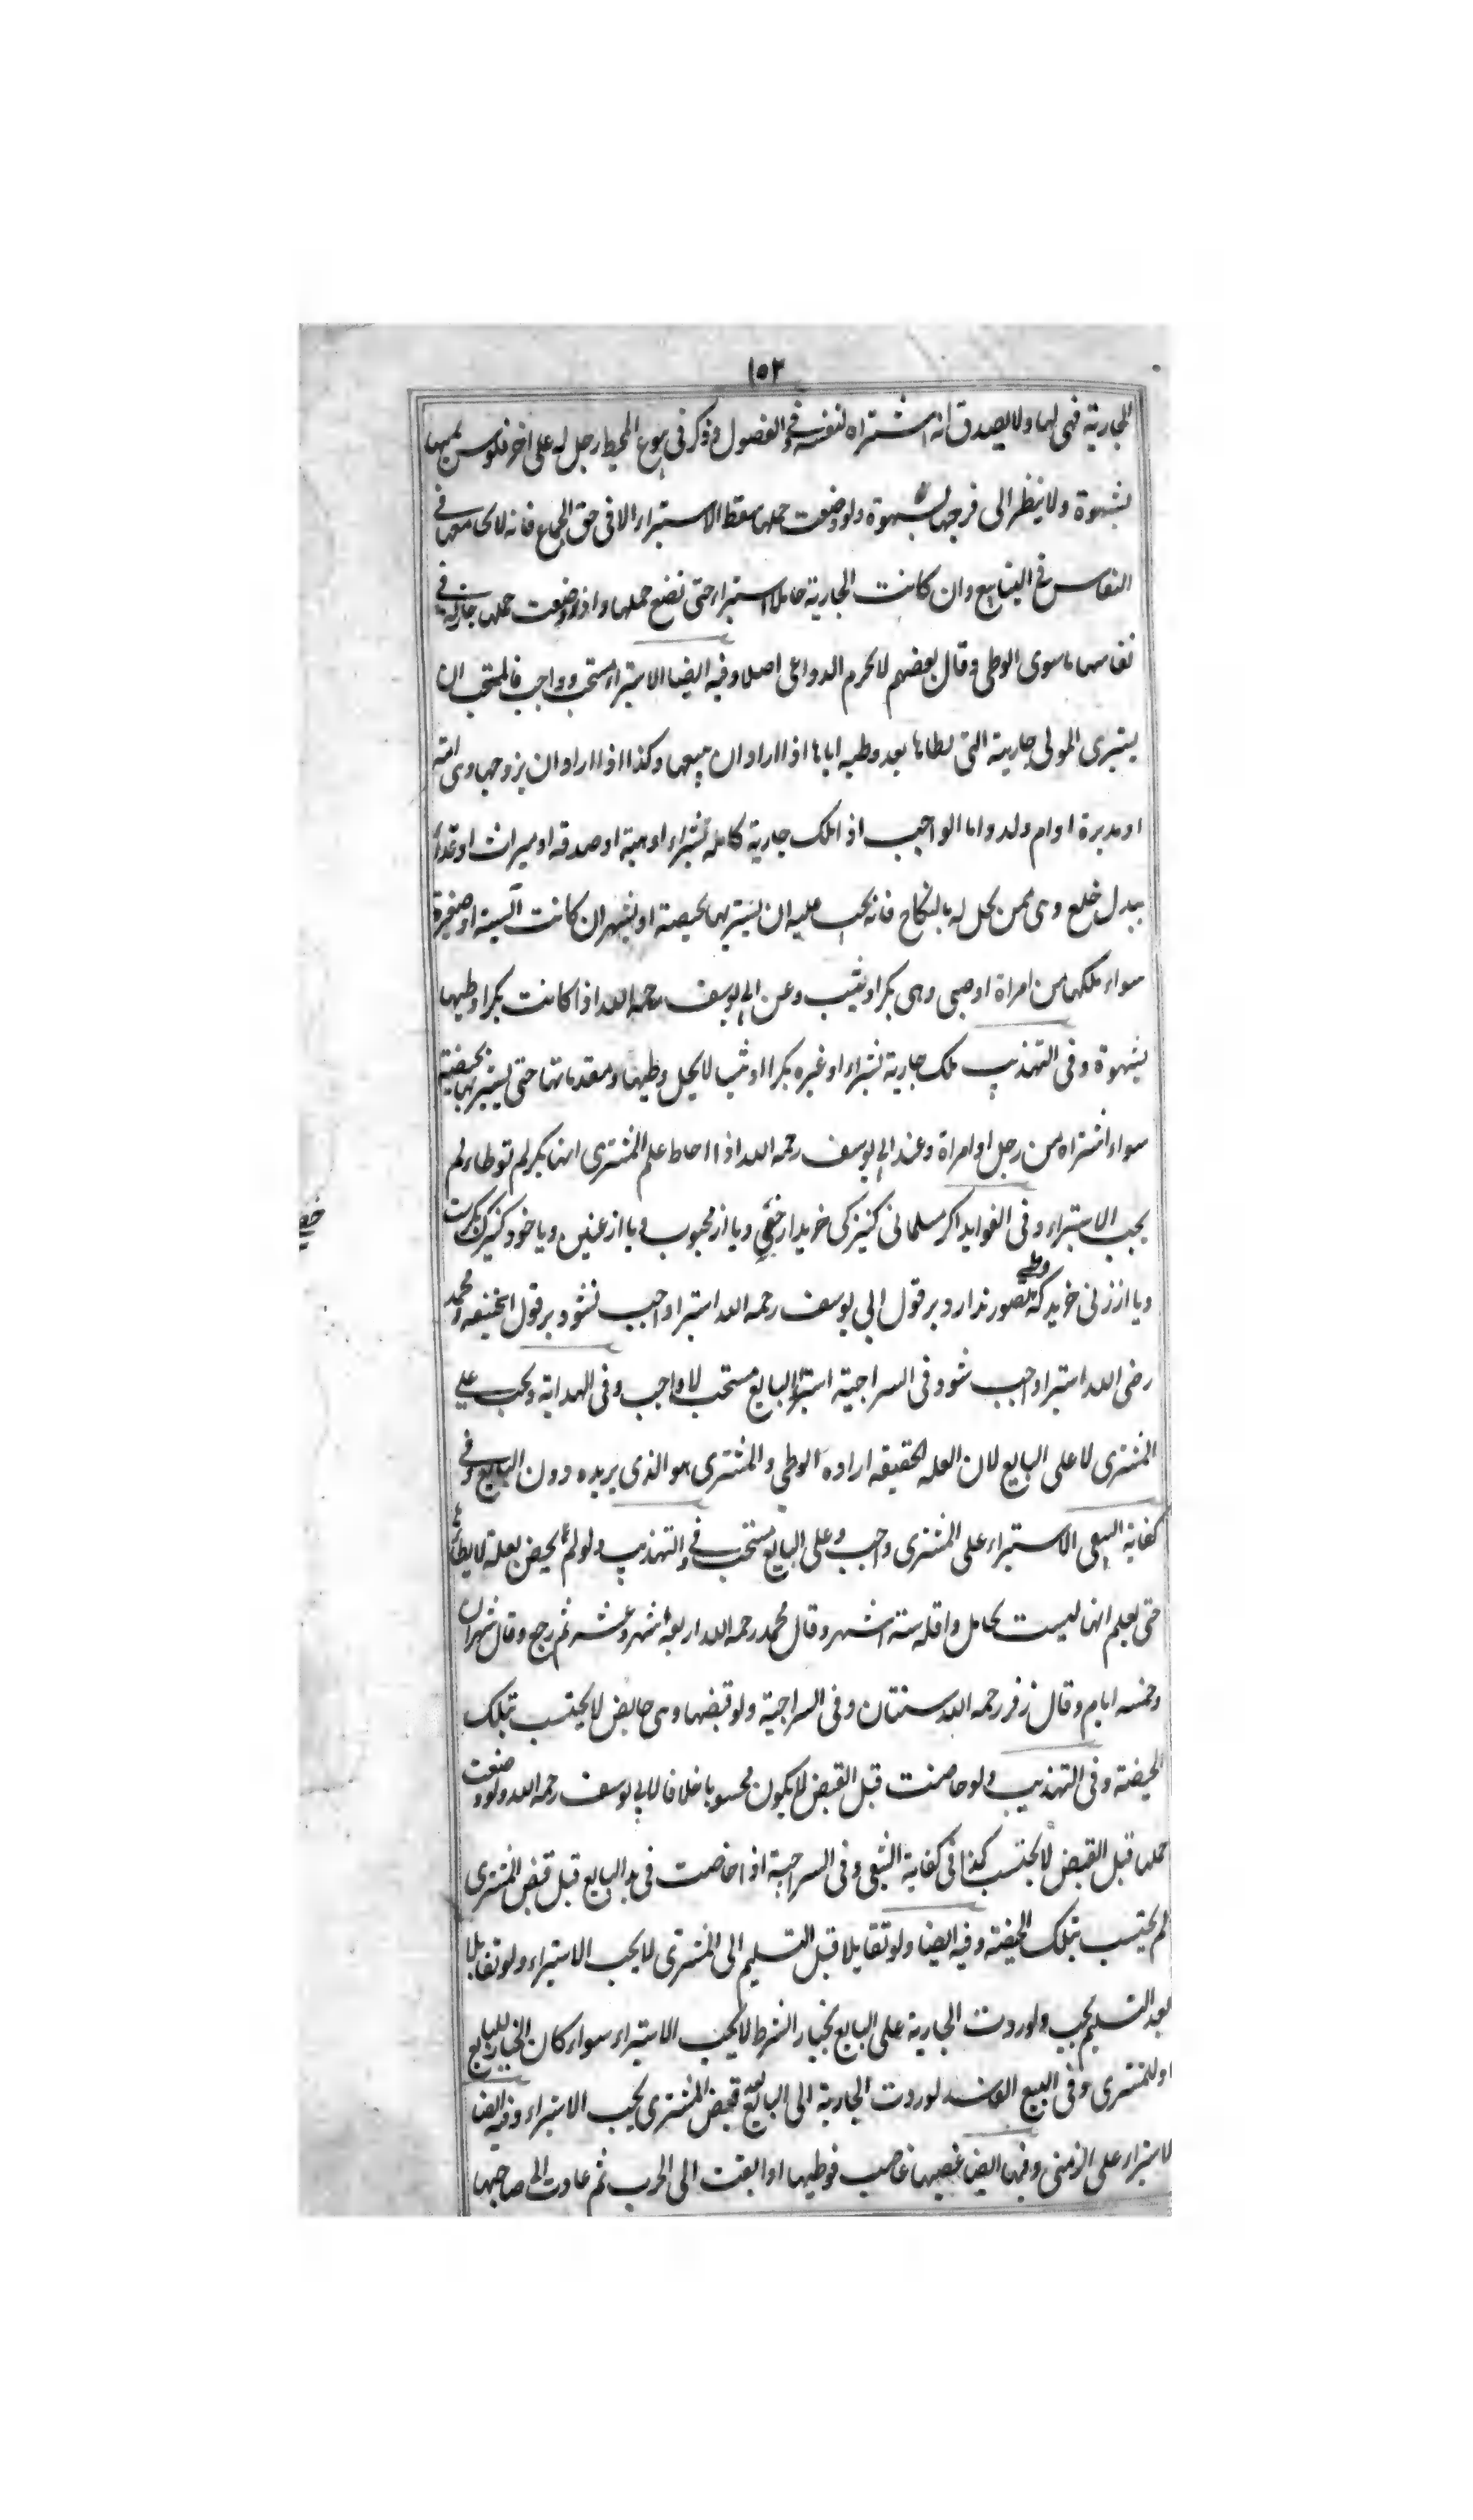 ١٥٢
الجارية فهى لها ولا يصدق انه اشتراه لنفسه وفى الفصول وذكر فى بيوع المحيط رجل له على اخر فلوس يمسها
بشهوة ولا ينظر الى فرجها بشهوة ولو وضعت حملها سقط الاستبراء الا فى حق الجماع فانه لا يجامعها فى
النفاس فى الينابيع وان كانت الجارية حاملا استبراء حتى تضع حملها واذا وضعت حملها جاز له فى
نفاسها ما سوى الوطى وقال بعضهم لا يحرم الدواعى اصلا وفيه ايضا الاستبراء مستحب وواجب فالمستحب ان
يستبرى المولى جاريته التى يطاها بعد وطيه اياها اذا اراد ان يبيعها وكذا اذا اراد ان يزوجها وهى امته
او مدبرة او ام ولد واما الواجب اذا ملك جارية كاملة بشراء او هبة او صدقه او ميراث او
ببدل خلع وهى ممن يحل له بالنكاح فانه يجب عليه ان يستبريها بحيضة او بشهر ان كانت آيسة او صغيرة
سواء ملكها من امراة او صبى وهى بكر او ثيب وعن ابى يوسف رحمه الله اذا كانت بكرا وطيها
بشهوة وفى التهذيب ملك جارية بشراء او غيره بكرا او ثيب لا يحل وطيها ومقدماتها حتى يستبريها بحيضة
سواء اشتراه من رجل او امراة وعند ابى يوسف رحمه الله اذا احاط علم المشترى انها بكر لم توطاء لم
يجب الاستبراء وفى الفوايد اكر مسلمانى كنيزكى خريد از خصى ويا از مجبوب ويا از عنين ويا خود كنيزك بكرست
ويا از زنى خريد كه وطى تصور ندارد بر قول ابى يوسف رحمه الله استبرا واجب نشود بر قول ابحنيفه ومحمد
رضى الله استبرا واجب شود وفى السراجية استبراء البايع مستحب لا واجب وفى الهداية ويجب على
المشترى لا على البايع لان العله الحقيقه ارادة الوطى والمشترى هو الذى يريده دون البايع وفى
كفاية البيهقى الاستبراء على المشترى واجب وعلى البايع مستحب وفى التهذيب ولو لم يحيض بعلة لا يطاها
حتى يعلم انها ليست بحامل واقله ستة اشهر وقال محمد رحمه الله اربعة اشهر وعشر ثم رجع وقال شهران
وخمسه ايام وقال زفر رحمه الله سنتان وفى السراجية ولو قبضها وهى حايض لا يحتسب بتلك
الحيضة وفى التهذيب ولو حاضت قبل القبض لا يكون محسوبا خلافا لابى يوسف رحمه الله ولو وضعت
حملها قبل القبض لا يحتسب كذا فى كفاية الشعبى وفى السراجية اذا حاضت فى يد البايع قبل قبض المشترى
لم يحتسب بتلك الحيضة وفيه ايضا ولو تقايلا قبل التسليم الى المشترى لا يجب الاستبراء ولو تقايلا
بعد التسليم يجب ولو ردت الجارية على البايع بخيار الشرط لا يجب الاستبراء سواء كان الخيار للبايع
او للمشترى وفى البيع الفاسد لو ردت الجارية الى البايع بعد قبض المشترى يجب الاستبراء وفيه ايضا
لا استبراء على المزنى وفيها ايضا غصبها غاصب فوطيها او ابقت الى الحرب ثم عادت الى صاحبها